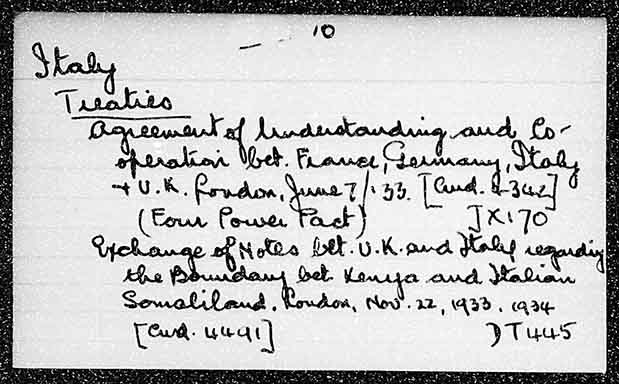 10
Italy
Treaties
Agreement of Understanding and Co-
operation bet. France, Germany, Italy
+ U.K. London, June 7/'33. [Cmd. 4342]
(Four Power Pact) JX170
Exchange of Notes bet. U.K. and Italy regarding
the Boundary bet. Kenya and Italian
Somaliland. London, Nov. 22, 1933. 1934
[Cmd. 4491] DT445